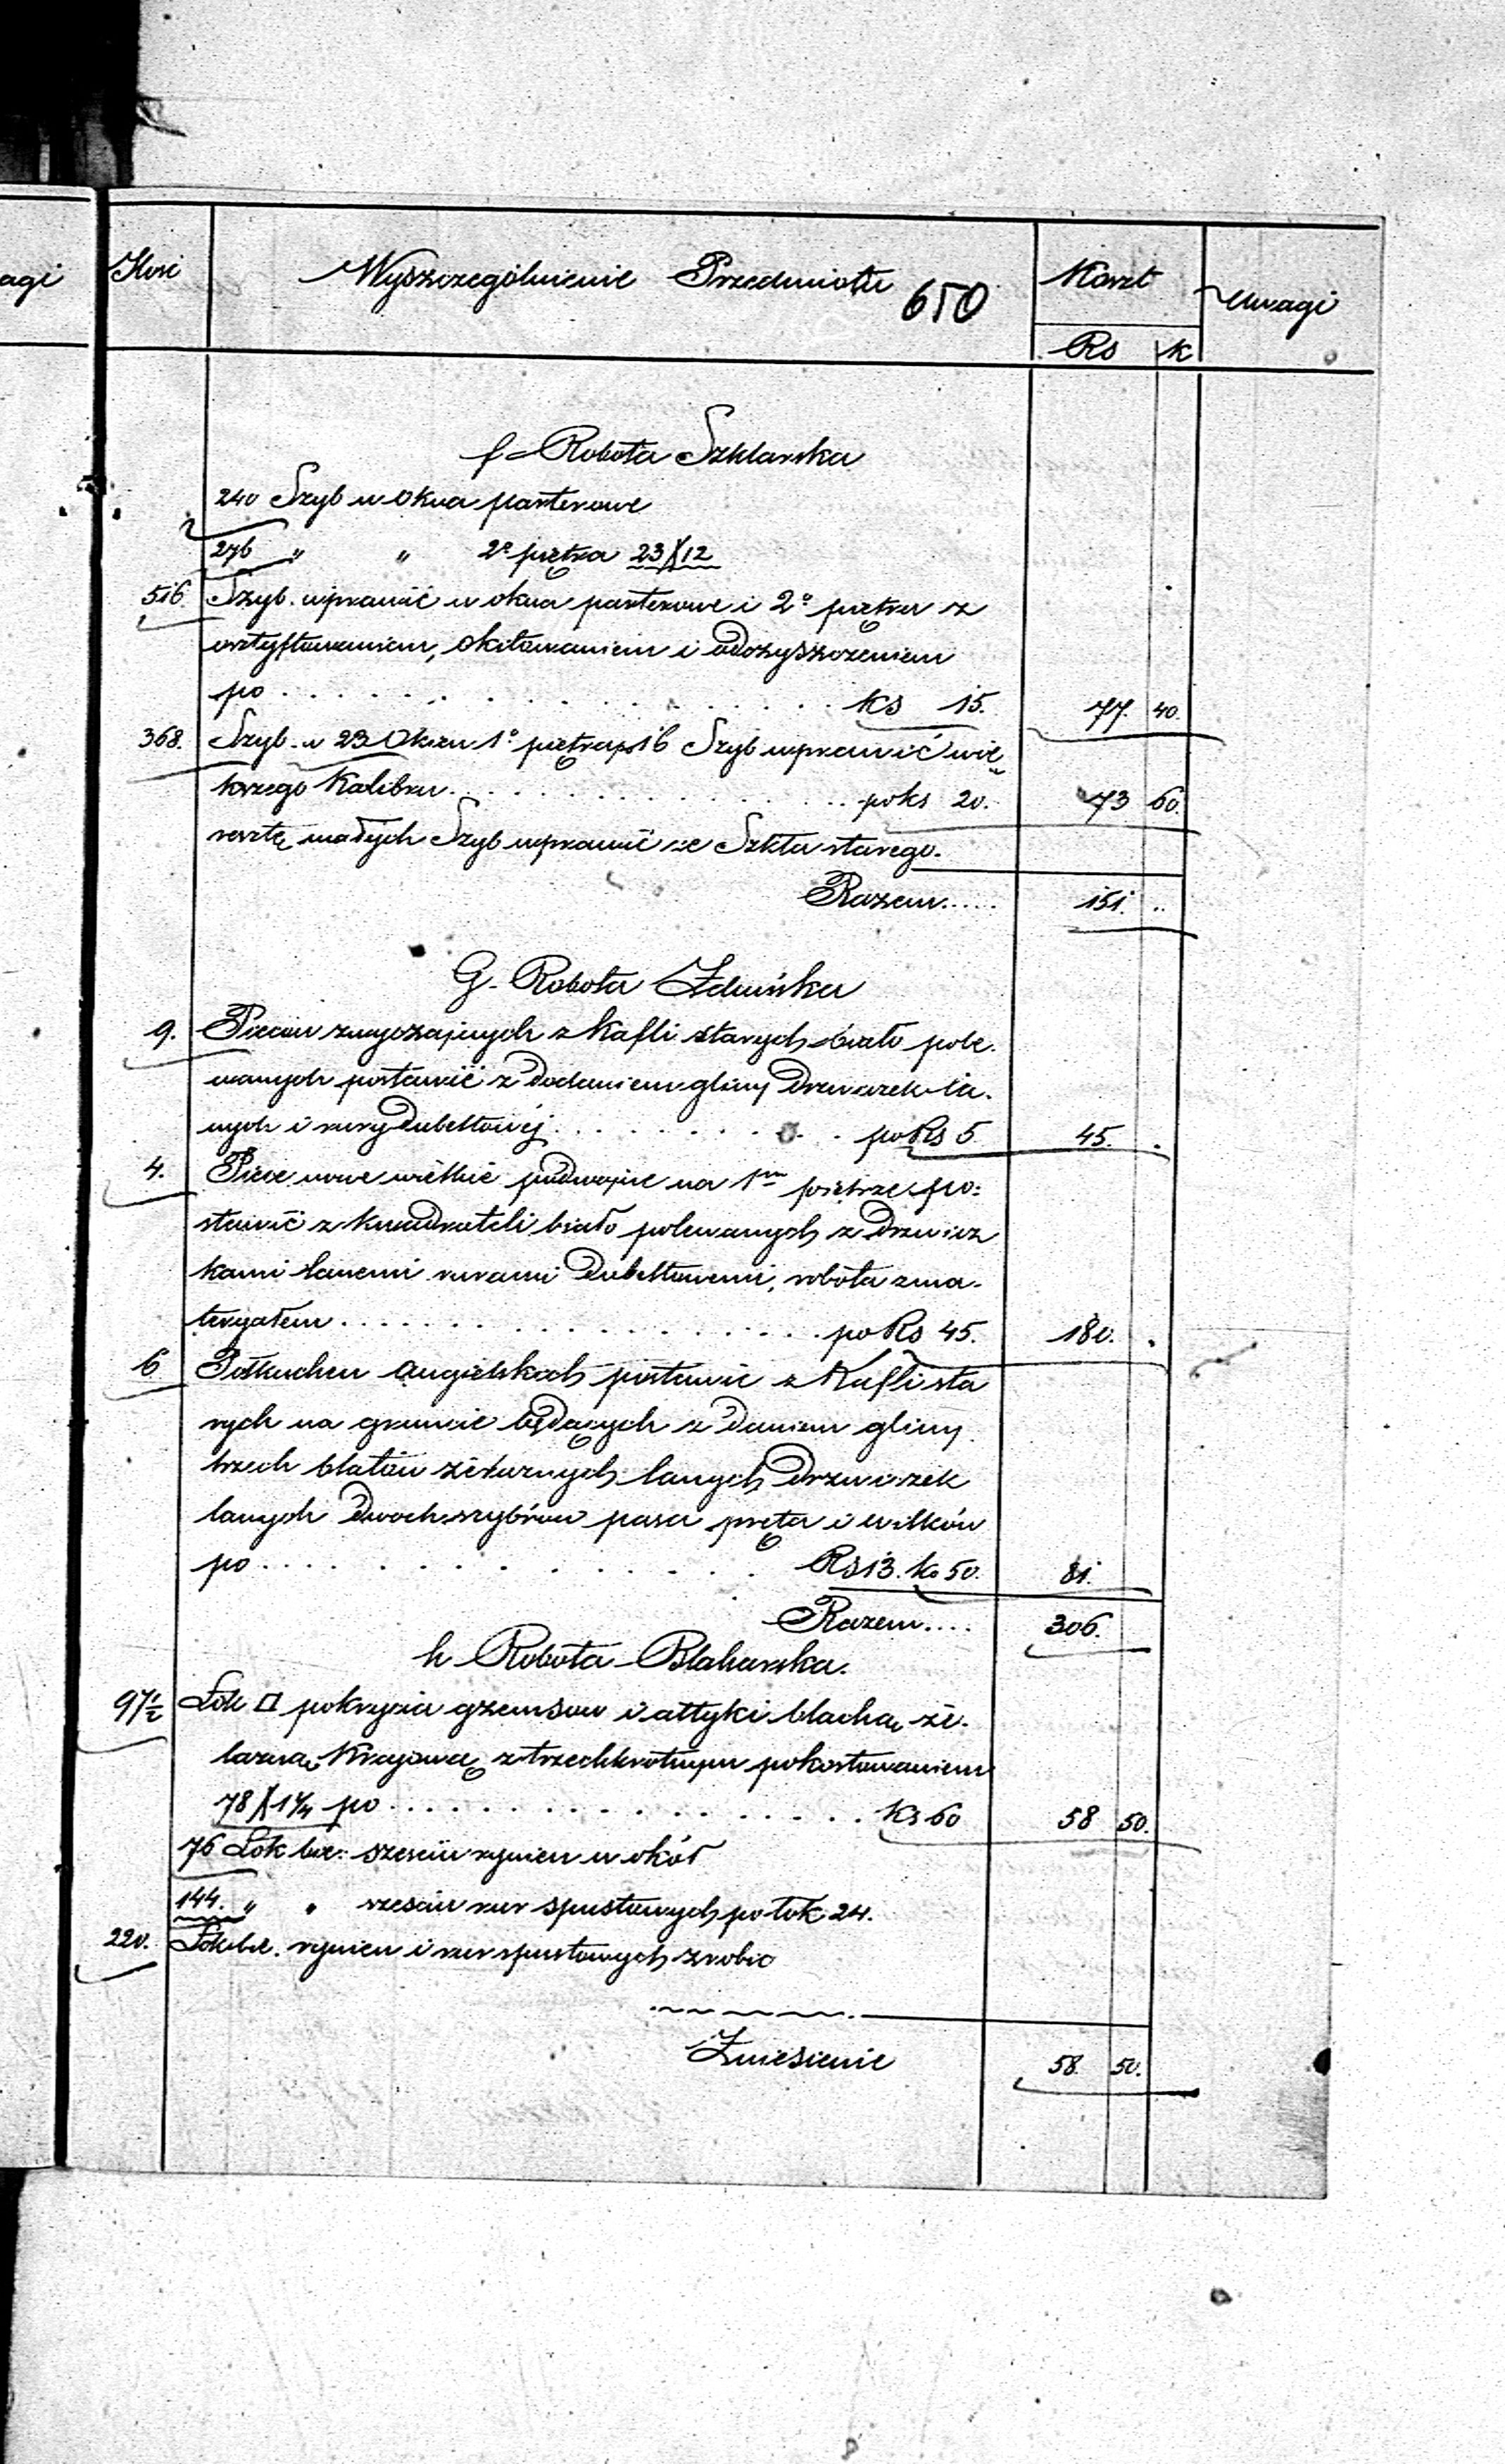 agi
Ilość Wyszczególnienie Przedmiotu 650 Koszt Uwagi
Rs K
f = Robota Szklarska
240 Szyb w okna parterowe
276 " " 2º piętra 23 X 12
516. Szyb. wprawić w okna parterowe i 2º piętra z
osztyftowaniem, okitowaniem i odczyszczeniem
po . . . . . . . . ks 15. 77. 40.
368. Szyb. w 23 Okien 1º piętra po 16 Szyb wprawić wię
kszego Kalibru . . . . . . . . po ks 20. 73 60.
resztę małych Szyb wprawić ze Szkła starego.
Razem..... 151. ..
G. Robota Zduńska
9. Pieców zwyczajnych z Kafli starych biało pole-
wanych postawić z dodaniem gliny drzwiczek la-
nych i rury dubeltowéj . . . . . . . . po Rs 5 45. .
4. Piece nowe wielkie podwójne na 1m piętrze po=
stawić z kwadrateli biało polewanych z drzwicz
kami lanemi rurami dubeltowemi, robota z ma-
teryałem . . . . . . . . po Rs 45. 180. .
6 Półkuchen angielskich postawić z Kafli sta
rych na gruncie będących z daniem gliny
trzech blatów żelaznych lanych drzwiczek
lanych dwoch szybrów pasa pręta i wilków
po . . . . . . . . Rs 13. ko 50. 81.
Razem.... 306.
h Robota Blaharska.
97½ Łok □ pokrycia gzemsow i attyki blachą że-
lazną Krajową z trzechkrotnym pokostowaniem
78 X 1¼ po . . . . . . . . ks 60 58 50.
76 Łok bie: sześciu rynien w okół
144. " " sześciu rur spustowych po łok 24.
220. Łok bie. rynien i rur spustowych zrobic
Zniesienie 58. 50.